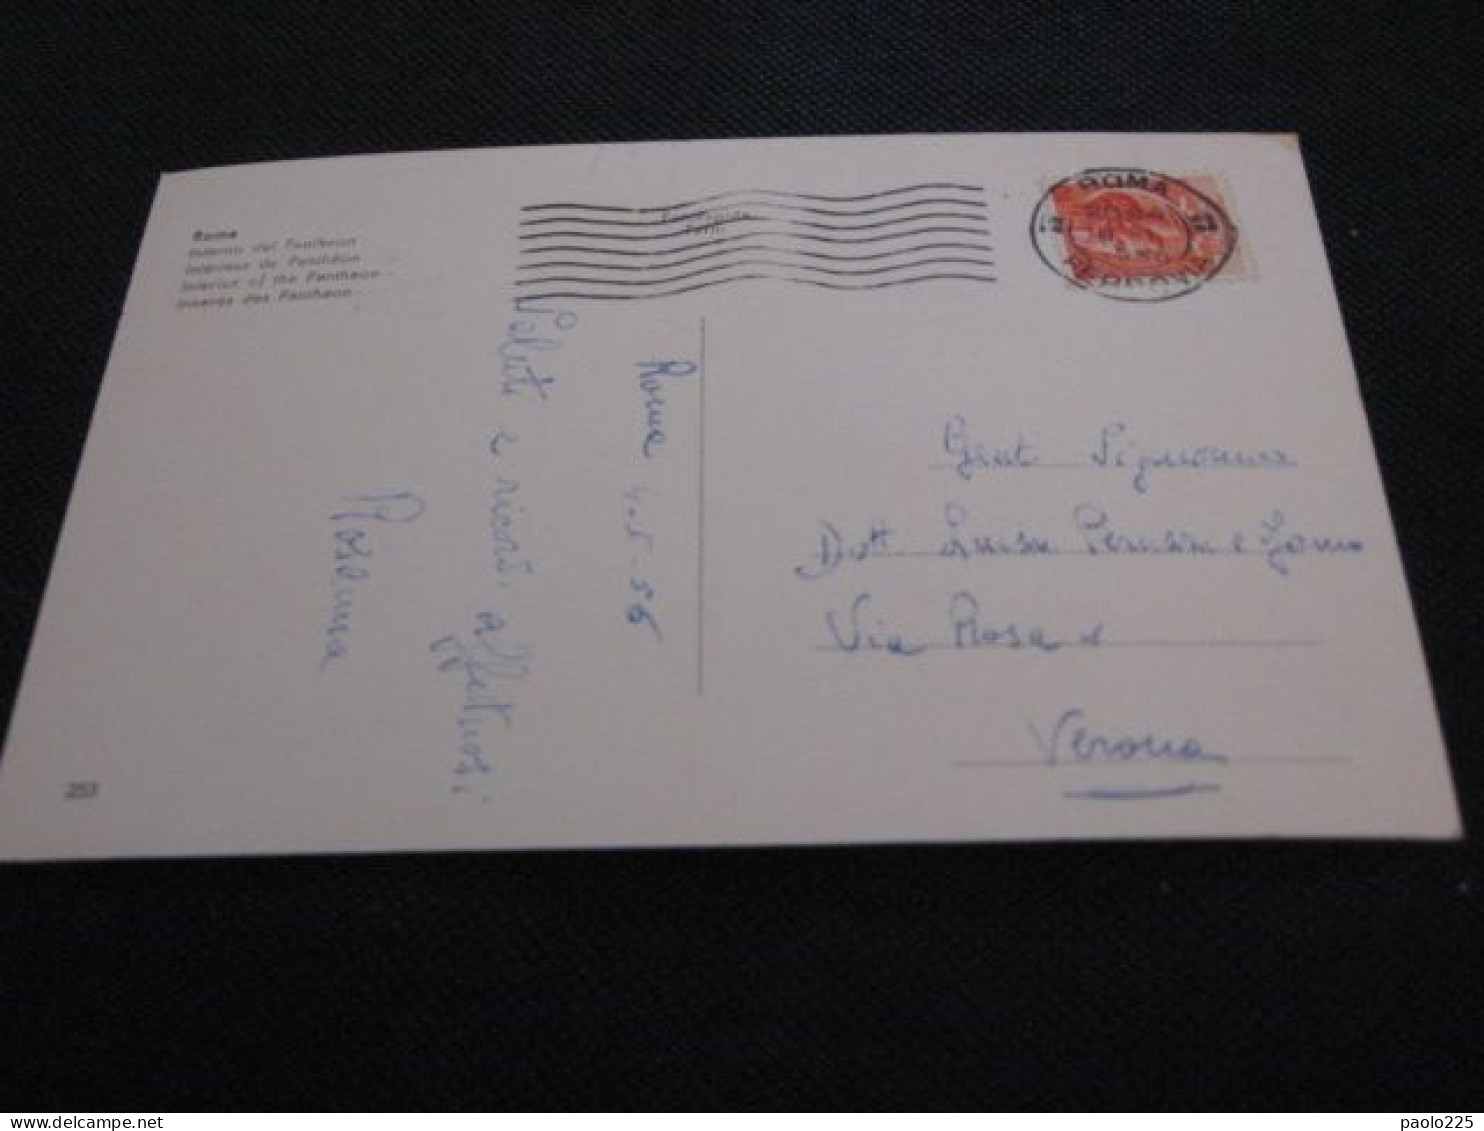 Roma
Interno del Pantheon
Intérieur du Panthéon
Interior of the Pantheon
Inneres des Pantheon
ROMA
FERROVIA
Roma 4-5-56
Saluti e ricordi affettuosi
Rosanna
Gent Signorina
Dott Luisa
Via Rosa 1
Verona
253
paolo225